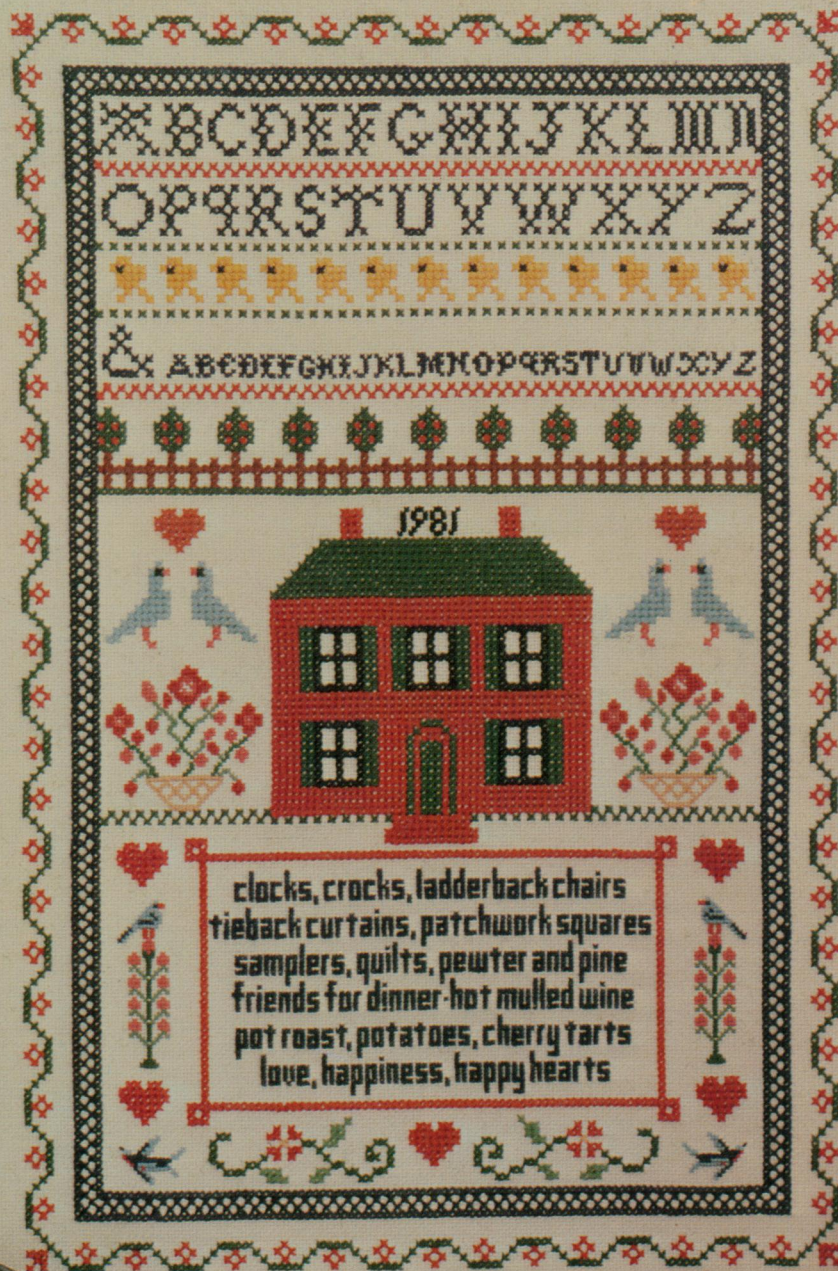 ABCDEFGHIJKLMN
OPQRSTUVWXYZ
& ABCDEFGHIJKLMNOPQRSTUVWXYZ
1981
clocks, crocks, ladderback chairs
tieback curtains, patchwork squares
samplers, quilts, pewter and pine
friends for dinner-hot mulled wine
pot roast, potatoes, cherry tarts
love, happiness, happy hearts